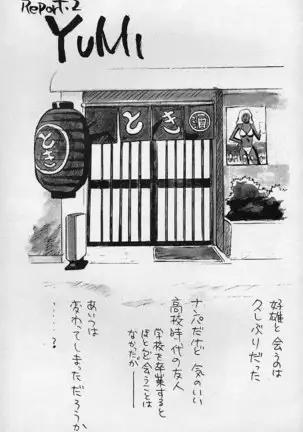 Report.2
YUMI
とき
酒
とき
好雄と会うのは
久しぶりだった
ナンパだけど 気のいい
高校時代の友人
学校を卒業すると
ほとんど会うことは
なかったが――
あいつは
変わってしまっただろうか
・・・・・・?